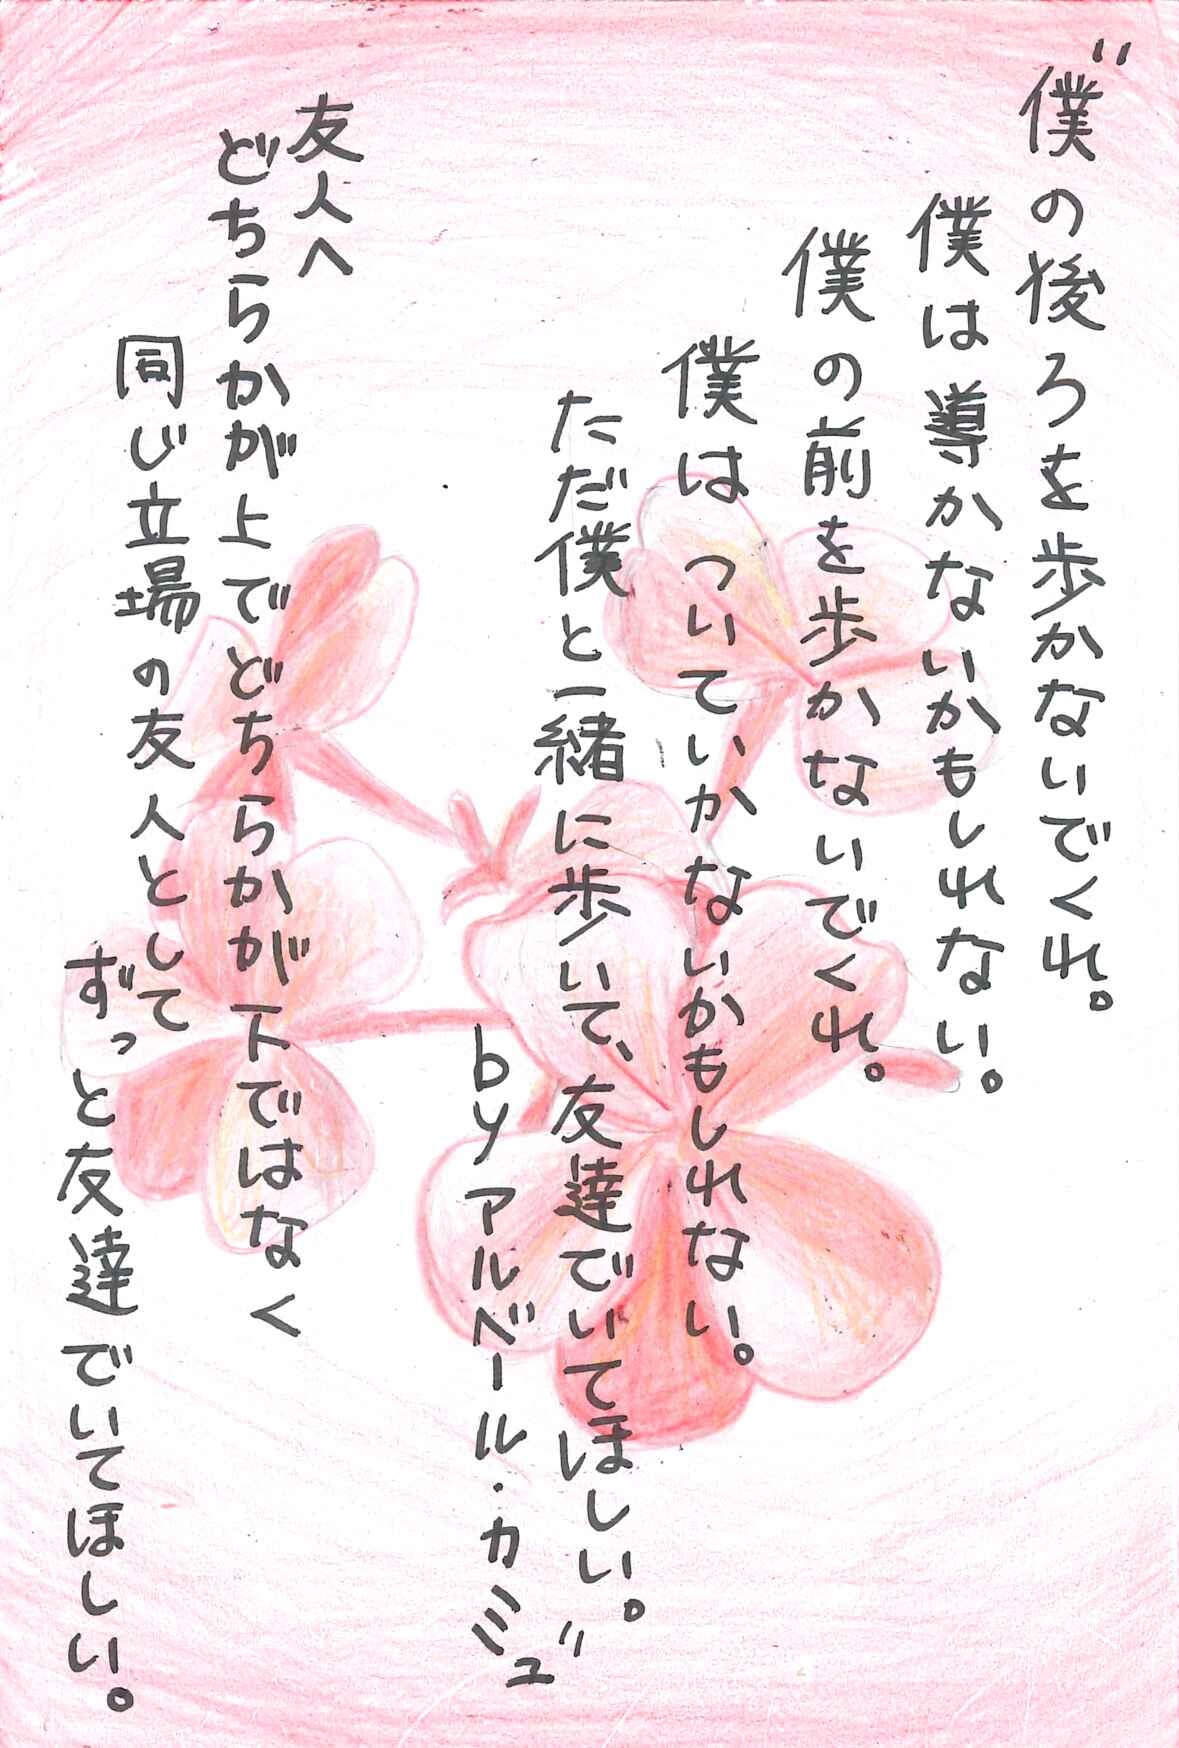 "僕の後ろを歩かないでくれ。
僕は導かないかもしれない。
僕の前を歩かないでくれ。
僕はついていかないかもしれない。
ただ僕と一緒に歩いて、友達でいてほしい。
byアルベール・カミュ"
友人へ
どちらかが上でどちらかが下ではなく
同じ立場の友人として
ずっと友達でいてほしい。